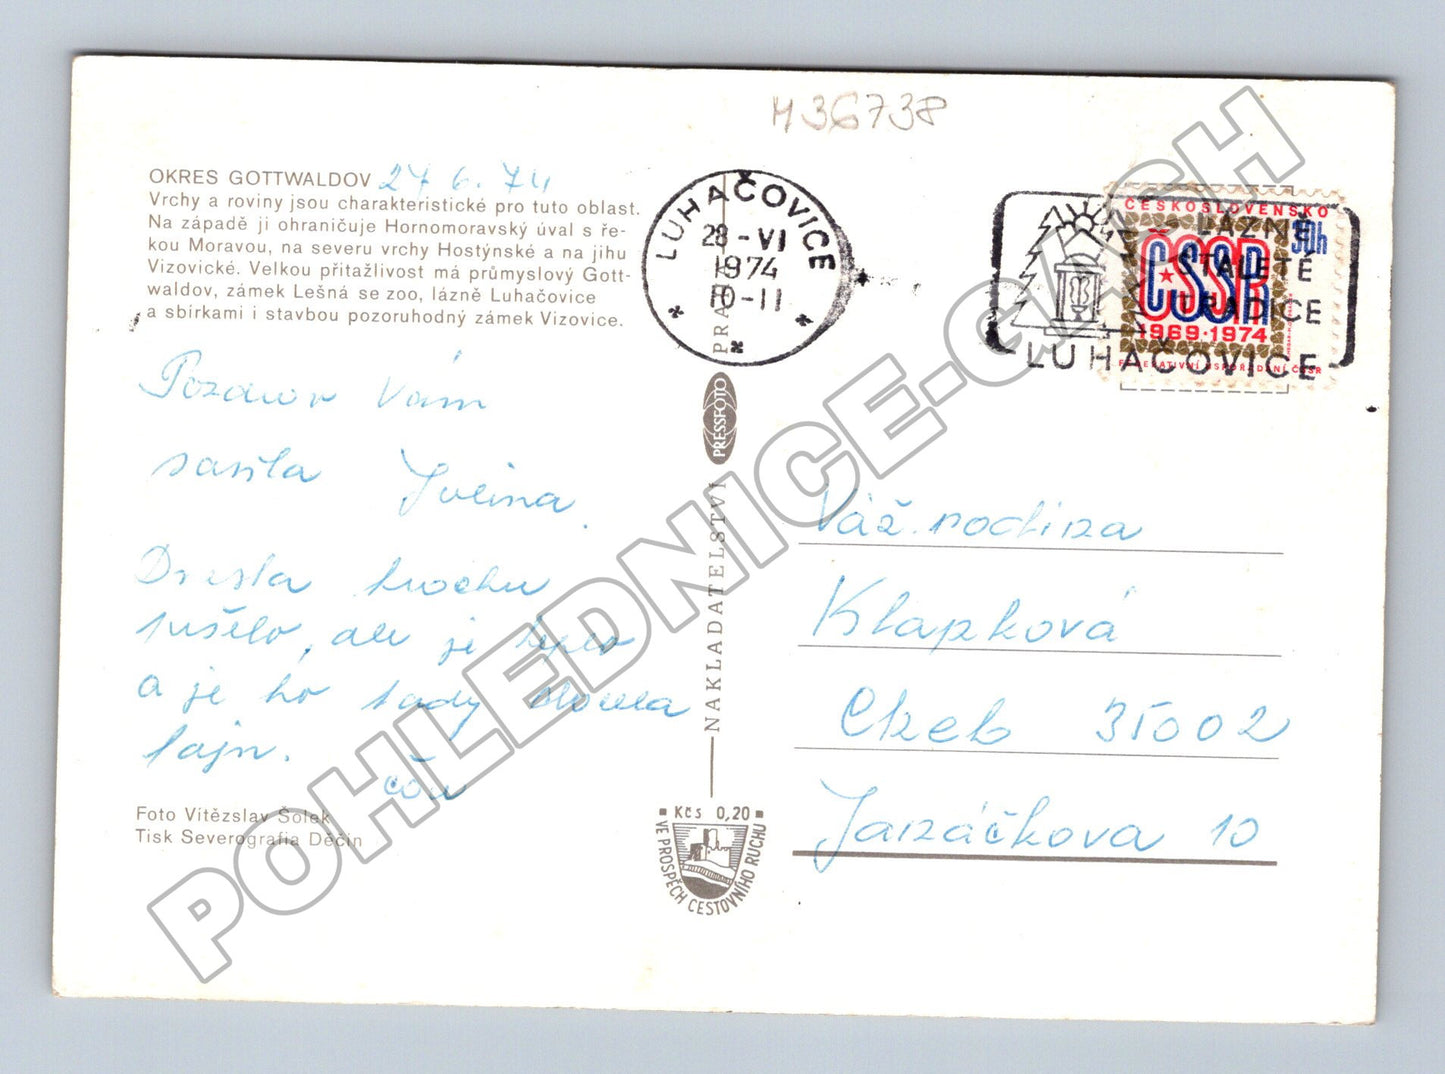 M36738
OKRES GOTTWALDOV 27 6. 74
Vrchy a roviny jsou charakteristické pro tuto oblast.
Na západě ji ohraničuje Hornomoravský úval s ře-
kou Moravou, na severu vrchy Hostýnské a na jihu
Vizovické. Velkou přitažlivost má průmyslový Gott-
waldov, zámek Lešná se zoo, lázně Luhačovice
a sbírkami i stavbou pozoruhodný zámek Vizovice.
Pozdrav Vám
trochu
, ale je
a je to tady
fajn.
Foto Vítězslav Šolek
Tisk Severografia Děčín
LUHAČOVICE
28-VI
1974
10-11
NAKLADATELSTVÍ PRESSFOTO PRAHA
Kčs 0,20
VE PROSPĚCH CESTOVNÍHO RUCHU
LÁZNĚ
STALETÉ
TRADICE
LUHAČOVICE
ČESKOSLOVENSKO
30h
ČSSR
1969·1974
FEDERATIVNÍ USPOŘÁDÁNÍ ČSSR
Váž. rodina
Klapková
Cheb 35002
10
POHLEDNICE-GASH